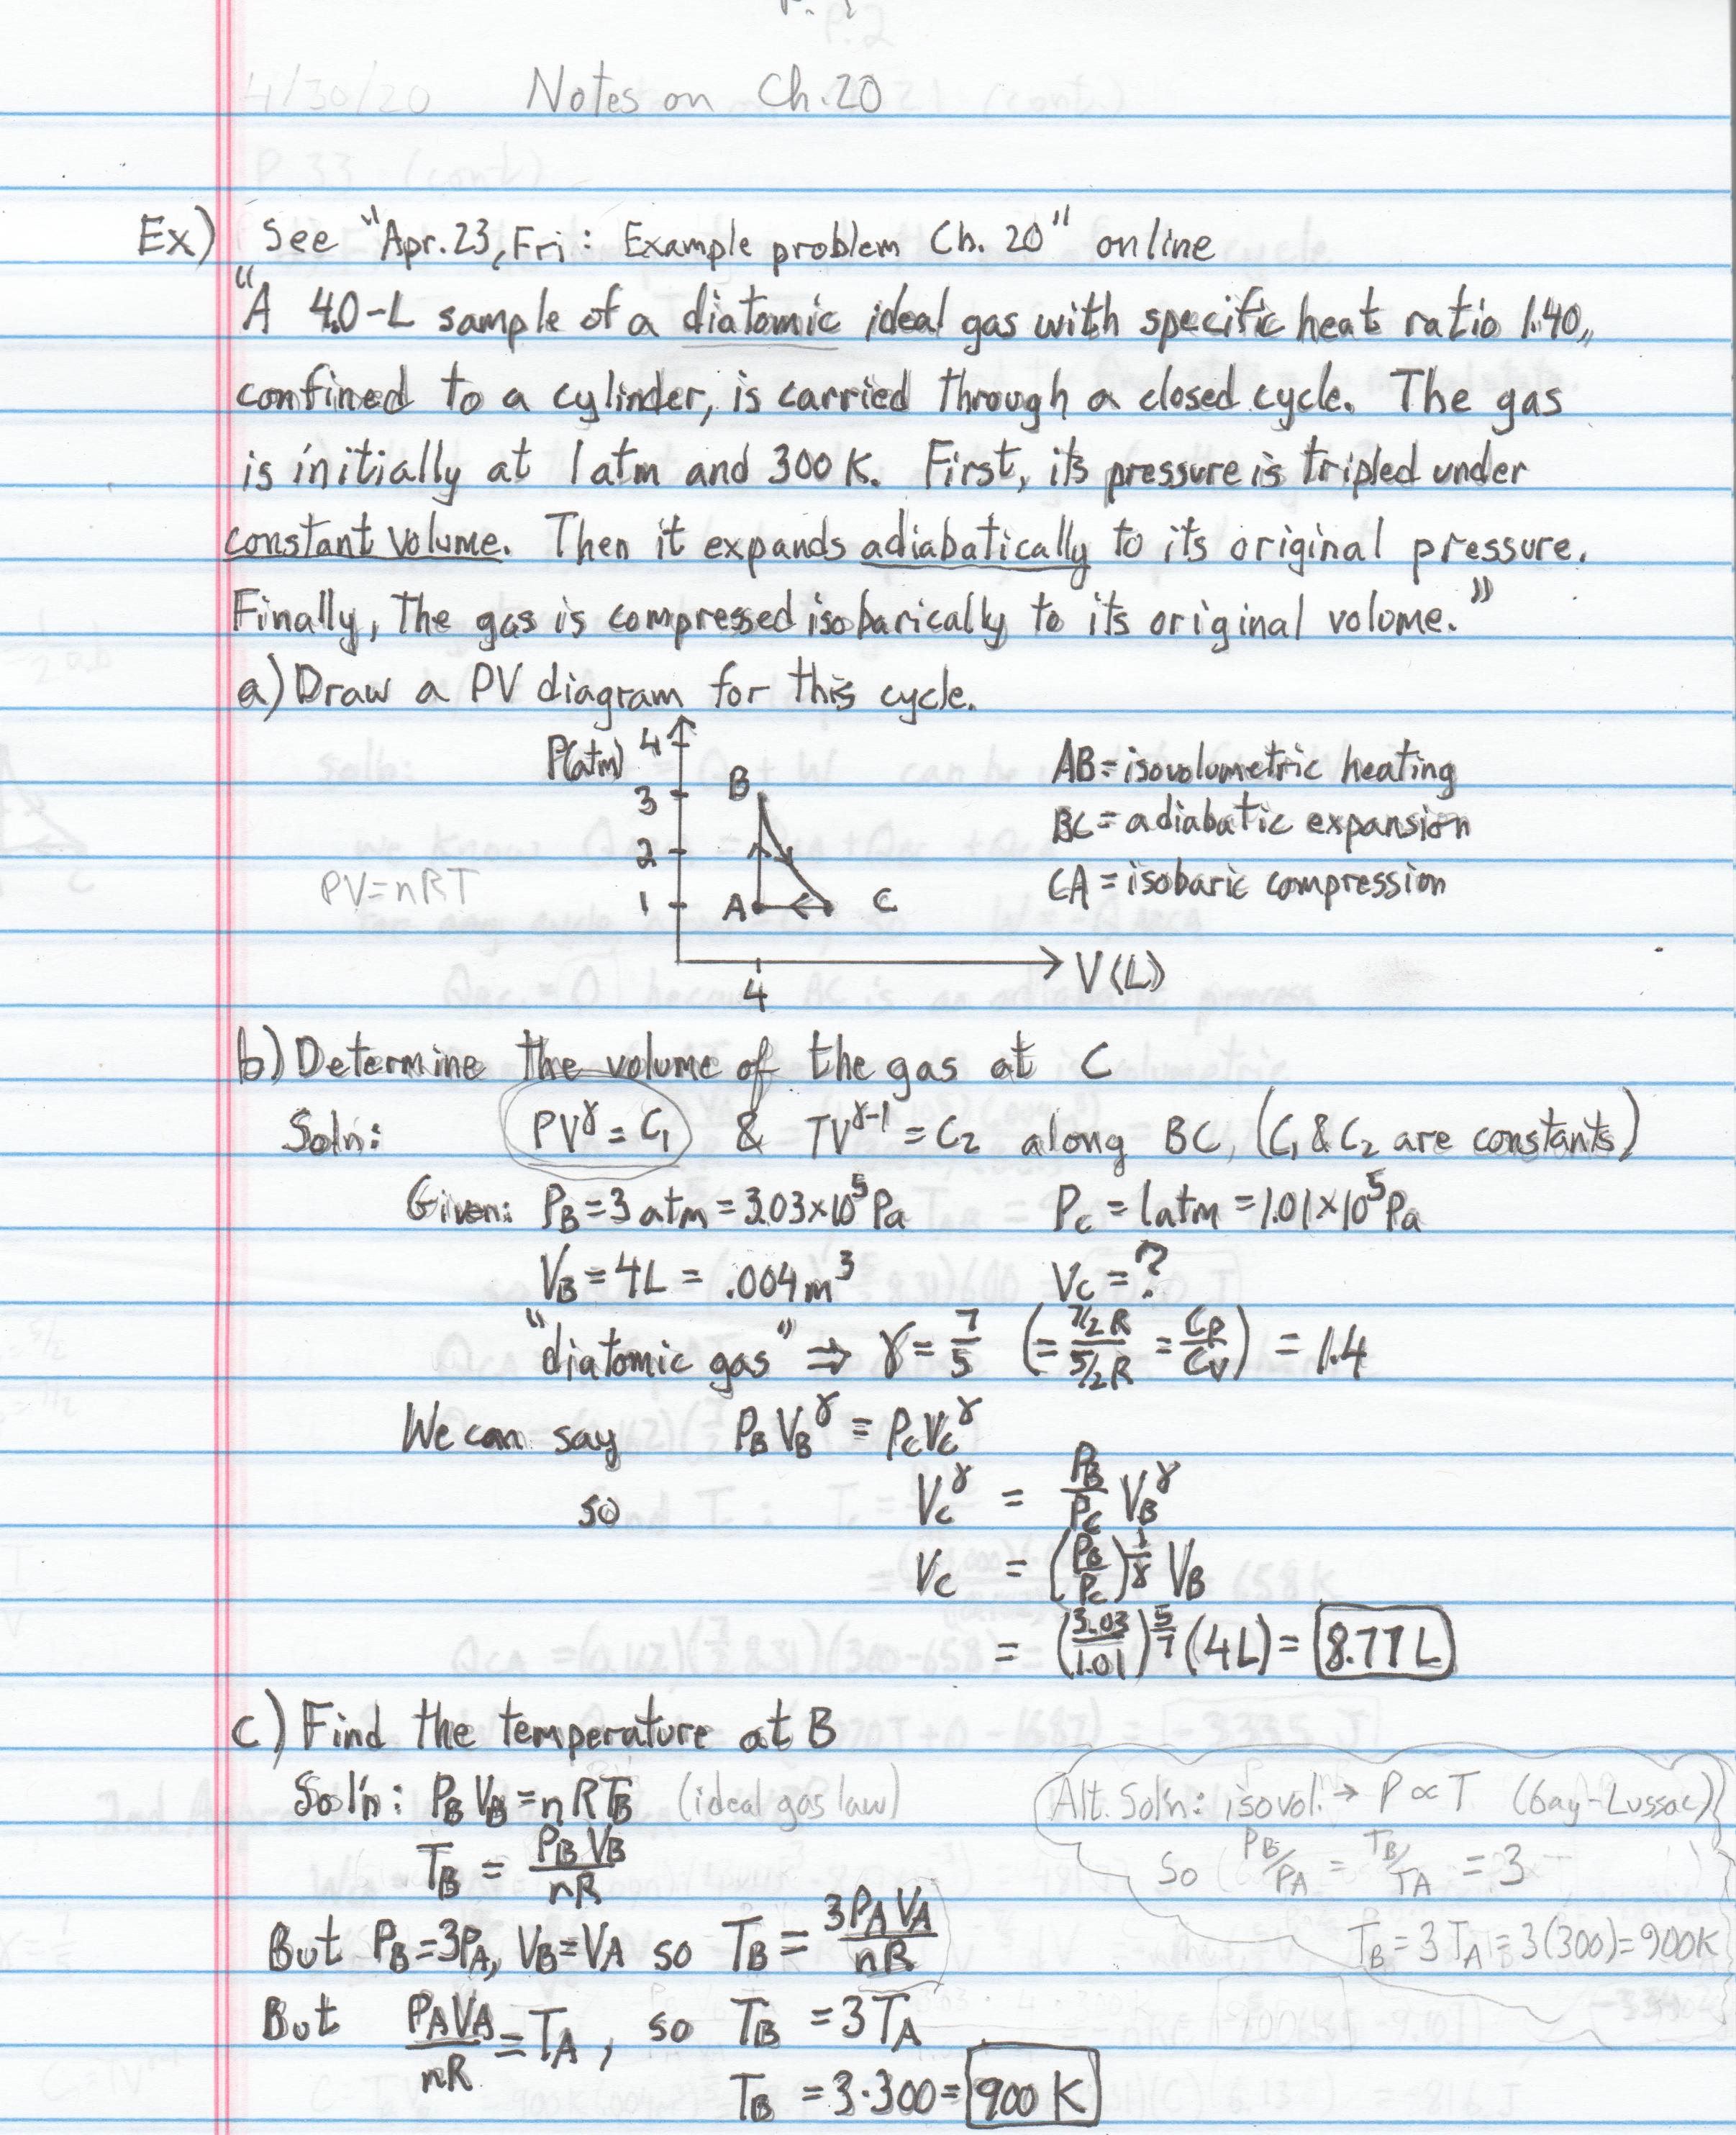 P.2
4/30/20 Notes on Ch.20
P.33 (cont)
Ex) See "Apr.23, Fri: Example problem Ch. 20" online
"A 4.0-L sample of a diatomic ideal gas with specific heat ratio 1.40,
confined to a cylinder, is carried through a closed cycle. The gas
is initially at 1 atm and 300 K. First, its pressure is tripled under
constant volume. Then it expands adiabatically to its original pressure.
Finally, the gas is compressed isobarically to its original volume."
a) Draw a PV diagram for this cycle.
P(atm) 4
3 B
2
1 A C
4
V (L)
PV=nRT
AB = isovolumetric heating
BC = adiabatic expansion
CA = isobaric compression
b) Determine the volume of the gas at C
Soln: PV^γ = C₁ & TV^γ-1 = C₂ along BC, (C₁ & C₂ are constants)
Given: P_B = 3 atm = 3.03×10⁵ Pa P_C = 1 atm = 1.01×10⁵ Pa
V_B = 4L = .004 m³ V_C = ?
"diatomic gas" ⇒ γ = 7/5 (= 7/2 R / 5/2 R = C_P/C_V) = 1.4
We can say P_B V_B^γ = P_C V_C^γ
so V_C^γ = P_B/P_C V_B^γ
V_C = (P_B/P_C)^1/γ V_B
= (3.03/1.01)^5/7 (4L) = 8.77 L
c) Find the temperature at B
Sol'n: P_B V_B = nRT_B (ideal gas law)
T_B = P_B V_B / nR
But P_B = 3P_A, V_B = V_A so T_B = 3P_A V_A / nR
But P_A V_A / nR = T_A, so T_B = 3T_A
T_B = 3·300 = 900 K
Alt. Sol'n: isovol. → P ∝ T (Gay-Lussac)
So P_B/P_A = T_B/T_A = 3
T_B = 3 T_A = 3(300) = 900K